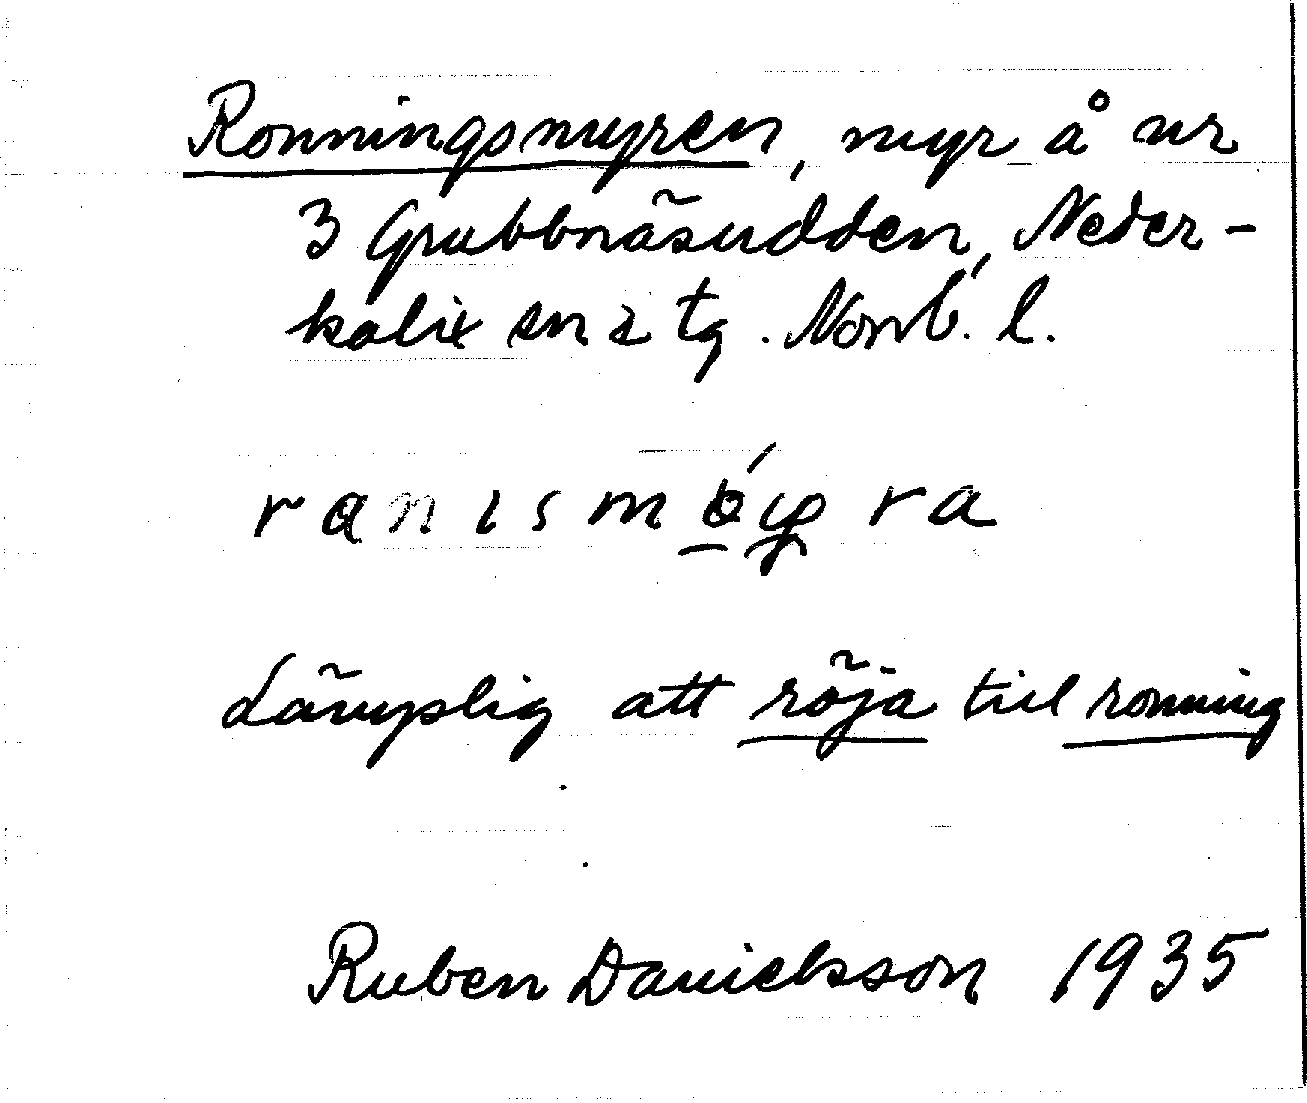 Ronningsmyren, myr å nr
3 Grubbnäsudden, Neder-
kalix sn o tg. Norrb. l.
ranismǿyra
Lämplig att röja till ronning
Ruben Danielsson 1935